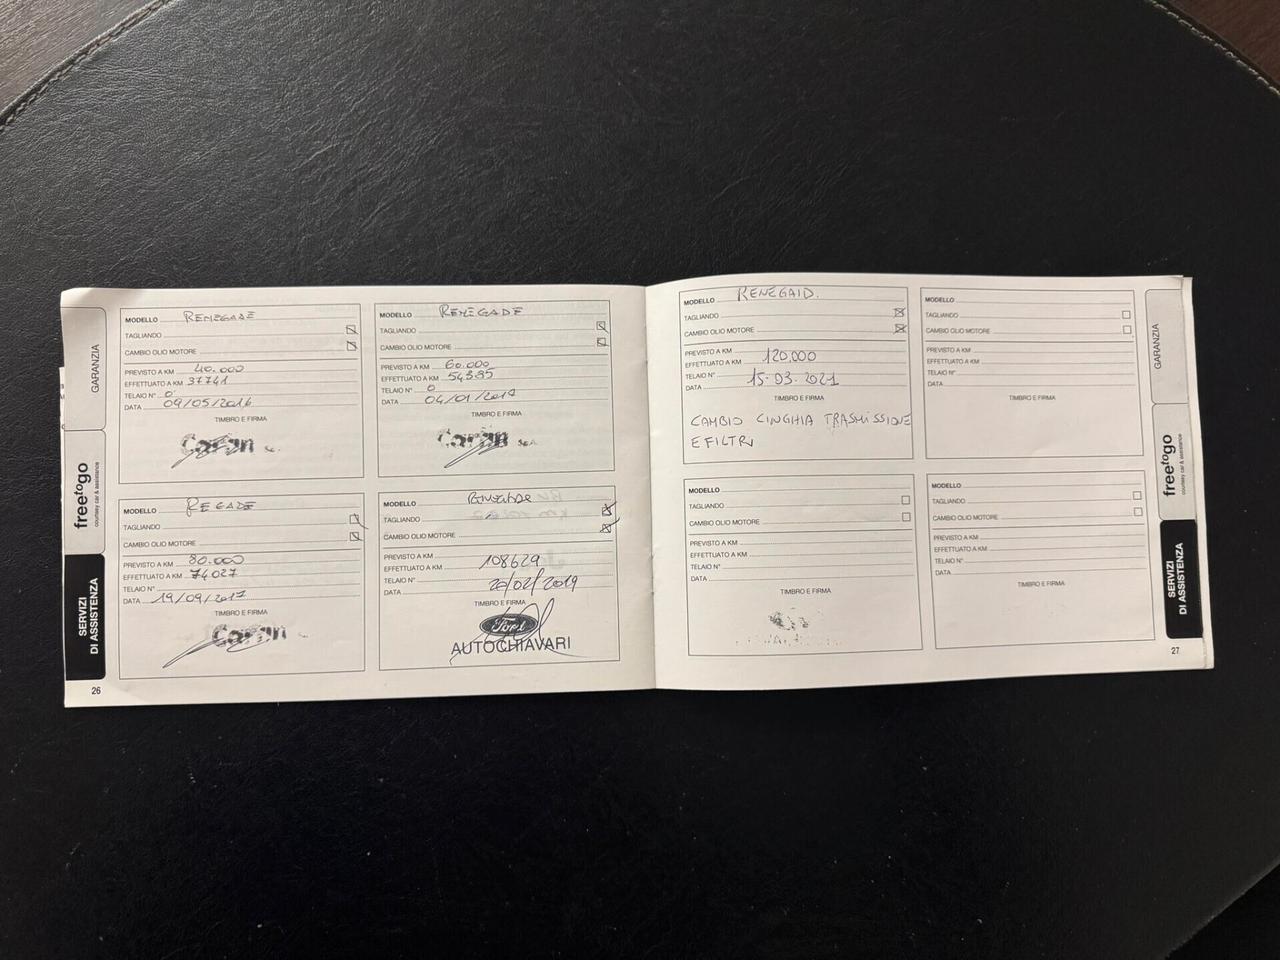 GARANZIA
freetogo
courtesy car & assistance
SERVIZI
DI ASSISTENZA
26
MODELLO RENEGADE
TAGLIANDO
CAMBIO OLIO MOTORE
PREVISTO A KM 40.000
EFFETTUATO A KM 37741
TELAIO N° 0
DATA 09/05/2016
TIMBRO E FIRMA
MODELLO RENEGADE
TAGLIANDO
CAMBIO OLIO MOTORE
PREVISTO A KM 60.000
EFFETTUATO A KM
TELAIO N° 0
DATA 04/01/2017
TIMBRO E FIRMA
MODELLO REGADE
TAGLIANDO
CAMBIO OLIO MOTORE
PREVISTO A KM 80.000
EFFETTUATO A KM 74027
TELAIO N°
DATA 19/09/2017
TIMBRO E FIRMA
MODELLO
TAGLIANDO
CAMBIO OLIO MOTORE
PREVISTO A KM
EFFETTUATO A KM 108629
TELAIO N°
DATA 20/02/2019
TIMBRO E FIRMA
Ford
AUTOCHIAVARI
MODELLO RENEGAID.
TAGLIANDO
CAMBIO OLIO MOTORE
PREVISTO A KM
EFFETTUATO A KM 120,000
TELAIO N°
DATA 15.03.2021
TIMBRO E FIRMA
CAMBIO CINGHIA TRASMISSIONE
E FILTRI
MODELLO
TAGLIANDO
CAMBIO OLIO MOTORE
PREVISTO A KM
EFFETTUATO A KM
TELAIO N°
DATA
TIMBRO E FIRMA
MODELLO
TAGLIANDO
CAMBIO OLIO MOTORE
PREVISTO A KM
EFFETTUATO A KM
TELAIO N°
DATA
TIMBRO E FIRMA
MODELLO
TAGLIANDO
CAMBIO OLIO MOTORE
PREVISTO A KM
EFFETTUATO A KM
TELAIO N°
DATA
TIMBRO E FIRMA
GARANZIA
freetogo
courtesy car & assistance
SERVIZI
DI ASSISTENZA
27